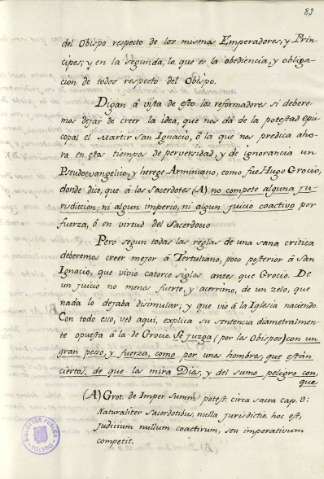 83
del Obispo respecto de los mismos Emperadores, y Prin-
cipes; y en la segunda, lo que es la obediencia, y obliga-
cion de todos respecto del Obispo.
Digan á vista de esto los reformadores si debere-
mos dejar de creer la idea, que nos dá de la potestad epis-
copal el Martir San Ignacio, ó la que nos predica aho-
ra en estos tiempos de perversidad, y de ignorancia un
Pseudoevangelico, y herege Arminiano, como fue Hugo Grocio,
donde dice, que á los Sacerdotes (A) no compete alguna ju-
risdiccion, ni algun imperio, ni algun juicio coactivo por
fuerza, ó en virtud del Sacerdocio.
Pero segun todas las reglas de una sana critica
deberemos creer mejor á Tertuliano, poco posterior á San
Ignacio, que vivio catorce siglos antes que Grocio. De
un juicio no menos fuerte, y acerrimo, de un zelo, que
nada lo dejaba disimular, y que vió á la Iglesia naciendo.
Con todo eso, ved aqui, explica su sentencia diametralmen-
te opuesta á la de Grocio. Se juzga (por los Obispos) con un
gran peso, y fuerza, como por unos hombres, que están
ciertos, de que los mira Dios, y del sumo peligro con
que
(A) Grot. de Imper. Summ. potest. circa sacra cap. 9:
Naturaliter Sacerdotibus, nulla jurisdictio, hoc est,
judicium nullum coactivum, seu imperativum
competit.